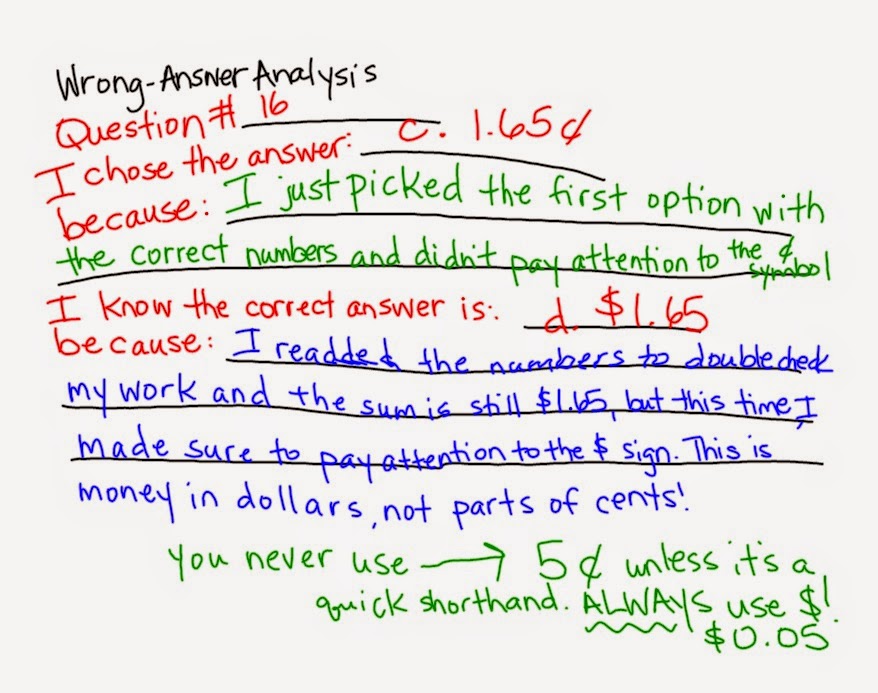 Wrong-Answer Analysis
Question # 16
I chose the answer: c. 1.65¢
because: I just picked the first option with
the correct numbers and didn't pay attention to the ¢
symbol
I know the correct answer is: d. $1.65
because: I readded the numbers to double check
my work and the sum is still $1.65, but this time, I
made sure to pay attention to the $ sign. This is
money in dollars, not parts of cents!
You never use → 5¢ unless it's a
quick shorthand. ALWAYS use $!
$0.05